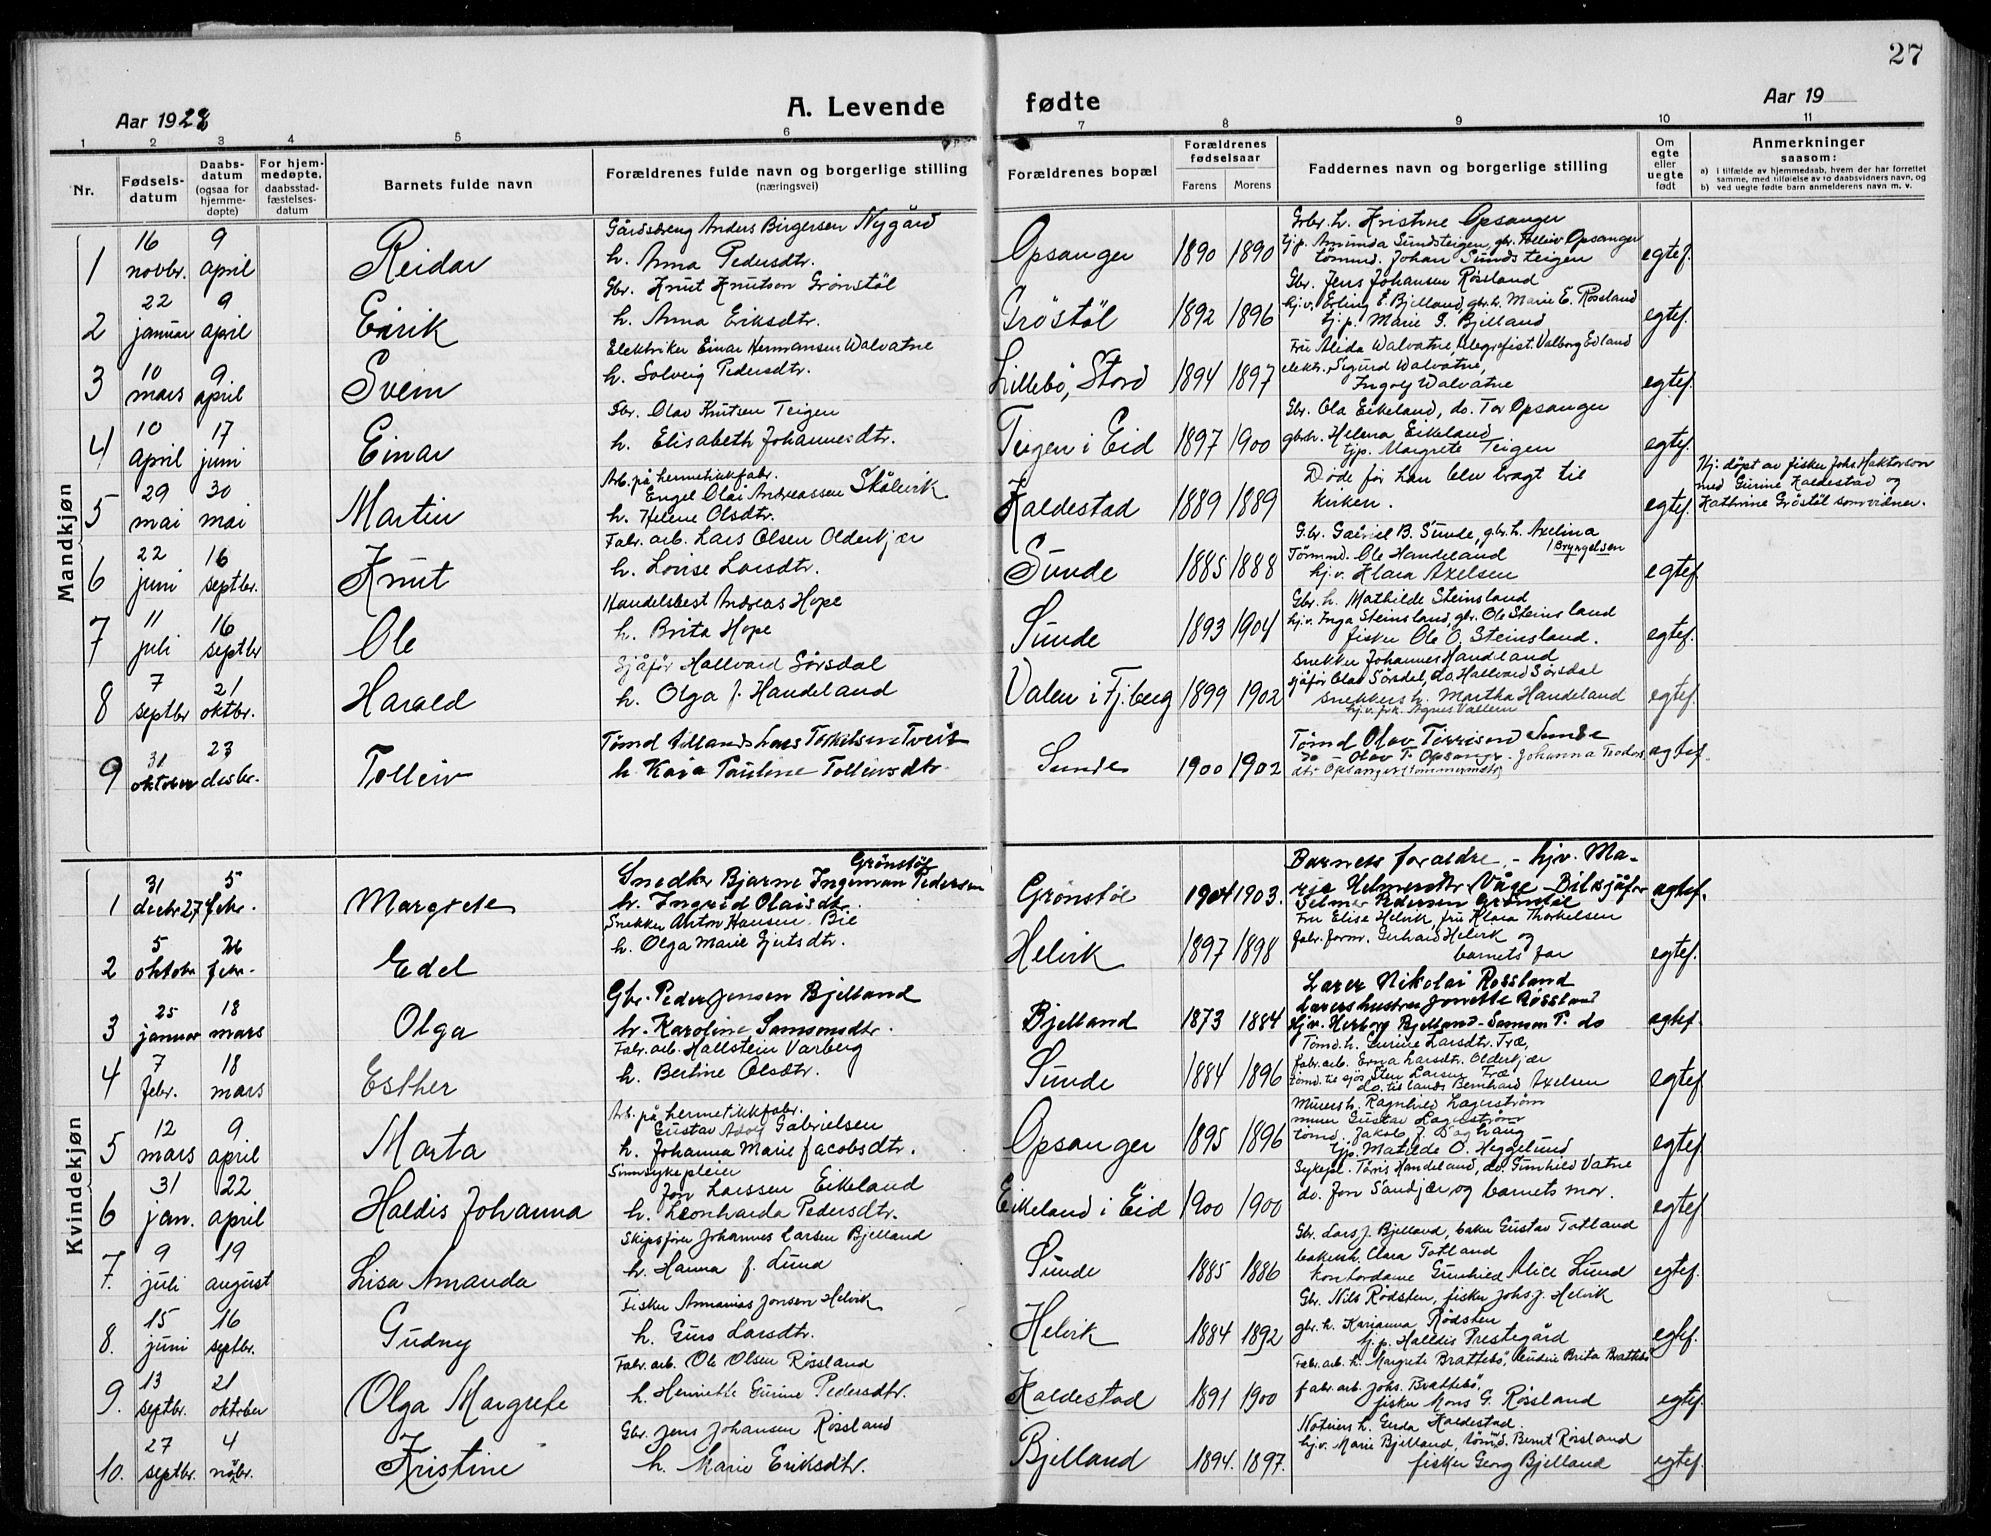 27
A. Levende fødte
Aar 1928
Aar 19
1 2 3 4 5 6 7 8 9 10 11
Nr.
Fødsels-
datum
Daabs-
datum
(ogsaa for
hjemme-
døpte)
For hjem-
medøpte,
daabsstad-
fæstelses-
datum
Barnets fulde navn
Forældrenes fulde navn og borgerlige stilling
(næringsvei)
Forældrenes bopæl
Forældrenes
fødselsaar
Farens Morens
Faddernes navn og borgerlige stilling
Om
egte
eller
uegte
født
Anmerkninger
saasom:
a) i tilfælde av hjemmedaab, hvem der har forrettet
samme, med tilføielse av to daabsvidners navn, og
b) ved uegte fødte barn anmelderens navn m. v.
Mandkjøn
1 16 novbr. 9 april Reidar
Gårdsdreng Anders Birgersen Nygård
h. Anna Pedersdtr.
Opsanger 1890 1890
Grbr. h. Kristine Opsanger
tjp. Amunda Sundsteigen, gbr. Tolleiv Opsanger
tømmd. Johan Sundsteigen
egtef.
2 22 januar 9 april Eirik
Gbr. Knut Knutson Grønstøl
h. Anna Eriksdtr.
Grøstøl 1892 1896
Gbr. Jens Johansen Røssland
hj.v. Erling E. Bjelland, gbr. h. Marie E. Røssland
tj.p. Marie G. Bjelland
egtef.
3 10 mars 9 april Svein
Elektriker Einar Hermansen Walvatne
h. Solveig Pedersdtr.
Lillebø, Stord 1894 1897
Fru Alida Walvatne, telegrafist. Valborg Edland
elektr. Sigurd Walvatne,
Ingolf Walvatne
egtef.
4 10 april 17 juni Einar
Gbr. Olav Knutsen Teigen
h. Elisabeth Johannesdtr.
Teigen i Eid 1897 1900
Gbr. Ola Eikeland, do. Tor Opsanger
gbr.h. Helena Eikeland
tjp. Margrete Teigen
egtef.
5 29 mai 30 mai Martin
Arb. på hermetikkfabr.
Engel Olai Andreassen Skålvik
h. Helene Olsdtr.
Kaldestad 1889 1889
Døde før han blev bragt til
kirken.
egtef.
Hj. døpt av fisker Johs Haktorson
med Gurine Kaldestad og
Kathrine Grøstøl som vidner.
6 22 juni 16 septbr. Knut
Fabr. arb. Lars Olsen Olderkjær
h. Lovise Larsdtr.
Sunde 1885 1888
Gbr. Gabriel B. Sunde, gbr. h. Axelina
Bryngelsen
Tømmd. Ole Handeland
hj.v. Klara Axelsen
egtef.
7 11 juli 16 septbr Ole
Handelsbest Andreas Hope
h. Brita Hope
Sunde 1893 1904
Gbr. h. Mathilde Steinsland
hj.v. Inga Steinsland, gbr. Ole Steinsland
fisker Ole O. Steinsland.
egtef.
8 7 septbr 21 oktbr. Harald
Sjåfør Hallvard Sørsdal
h. Olga J. Handeland
Valen i Fj.berg 1899 1902
Snekker Johannes Handeland
sjåfør Olav Sørsdal, do. Hallvard Sørsdal
snekkers h. Martha Handeland
hj.v. frk. Agnes Vallein
egtef.
9 31 oktober 23 desbr. Tolleiv
Tømd tillands Lars Torkilsen Tveit
h. Kaia Pauline Tolleivsdtr
Sunde 1900 1902
Tømd Olav Torrisend Sunde
do - Olav T. Opsanger - Johanna Teodors
dtr Opsanger (tømmermstr)
egtef.
Kvindekjøn
1 31 decbr 27 5 febr. Margrete
Grønstøl
Snedker Bjarne Ingeman Pedersen
h. Ingrid Olaisdtr.
Grønstøl 1904 1903.
Barnets forældre, - hjv. Ma-
rie Helmersdtr Våge - Bilsjåfør
Selmer Pedersen Grønstøl
egtef.
2 5 oktobr 26 febr. Edel
Snekker Anton Hansen Bie
h. Olga Marie Gjertsdtr.
Helvik 1897 1898
Fru Elise Helvik, fru Klara Thorkelsen
fabr. form. Gerhard Helvik og
barnets far
egtef.
3 25 januar 18 mars Olga
Gbr. Peder Jensen Bjelland
h. Karoline Samsonsdtr.
Bjelland 1873 1884
Lærer Nikolai Røssland
Lærershustru Jonette Røssland
Hjv. Herborg Bjelland - Samson P. do
egtef.
4 7 febr. 18 mars Esther
Fabr. arb. Hallstein Varberg
h. Bertine Olsdtr.
Sunde 1884 1896
Tømd. h. Gurine Larsdtr. Træ,
fabr. arb. Erna Larsdtr. Olderkjær
tømd. til sjøs Sten Larsen Træ
do. tillands Bernhard Axelsen
egtef.
5 12 mars 9 april Marta
Arb. på hermetikkfabr.
Gustav Adolf Gabrielsen
h. Johanna Marie Jacobsdtr.
Opsanger 1895 1896
Murersh. Ragnhild Lagerstrøm
murer Gustav Lagerstrøm
tømd. Jakob J. Dagsvang
tjp. Matilde O. Heggelund
egtef.
6 31 jan. 22 april Haldis Johanna
Sinnsykepleier
Jon Larssen Eikeland
h. Leonharda Pedersdtr.
Eikeland i Eid 1900 1900
Sykepl. Tørris Handeland, do. Gunhild Vatne
do. Jon Sandjær og barnets mor.
egtef.
7. 9 juli 19 august Lisa Amanda
Skipsfører Johannes Larsen Bjelland
h. Hanna f. Lund
Sunde 1885 1886
Gbr. Lars J. Bjelland, baker Gustav Totland
bakersh. Clara Totland
kontordame Gunhild Alice Lund
egtef.
8. 15 juni 16 septbr. Gudny
Fisker Annanias Jonsen Helvik
h. Guro Larsdtr.
Helvik 1884 1892
Gbr. Nils Rødsten, fisker Johs J. Helvik
gbr. h. Karianna Rødsten
tj.p. Halldis Prestegård
egtef.
9. 13 septbr. 21 oktober Olga Margrete
Fabr. arb. Ole Olsen Røssland
h. Henriette Gurine Pedersdtr.
Kaldestad 1891 1900
Fabr. arb. h. Margrete Brattebø, Brita Brattebø
fabr. arb. Johs. Brattebø,
fisker Mons G. Røssland
egtef.
10. 27 septbr. 4 nóbr. Kristine
Gbr. Jens Johansen Røssland
h. Marie Eriksdtr.
Bjelland 1894. 1897.
Noteiers h. Gerda Kaldestad.
hj.v. Marie Bjelland, tømd. Bernt Røssland
fisker Georg Bjelland
egtef.